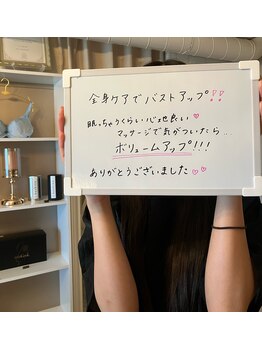 全身ケアでバストアップ!!
眠っちゃうくらい心地良い♡
マッサージで気がついたら..
ボリュームアップ!!!
ありがとうございました♡♡